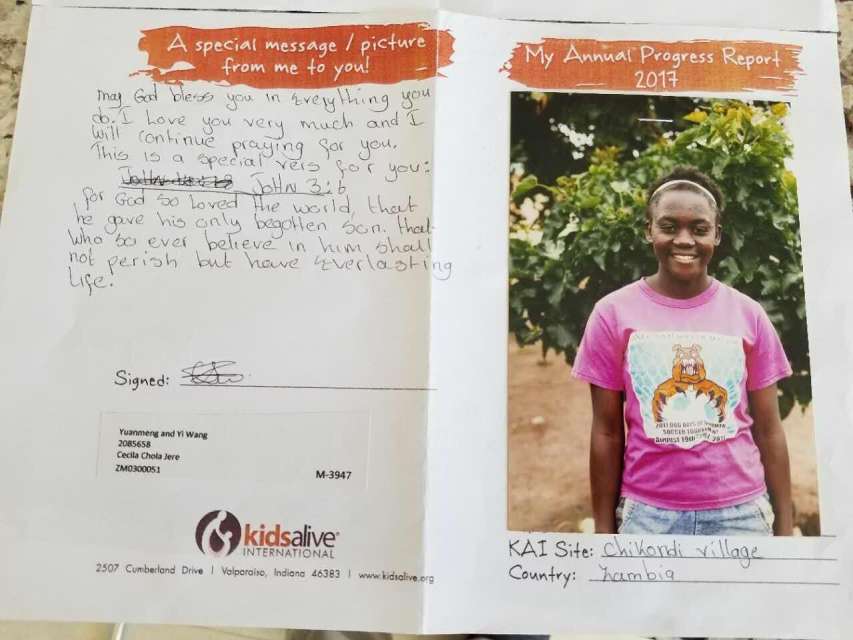 A special message / picture
from me to you!
may God bless you in everything you
do. I Love you very much and I
will continue praying for you.
This is a special vers for you:
John 3:6
for God so Loved the world, that
he gave his only begotten son. that
who so ever believe in him shall
not perish but have Everlasting
Life.
Signed:
Yuanmeng and Yi Wang
2085658
Cecila Chola Jere
ZM0300051
M-3947
kidsalive
INTERNATIONAL
2507 Cumberland Drive | Valporaiso, Indiana 46383 | www.kidsalive.org
My Annual Progress Report
2017
SOCCER TOURNAMENT
AUGUST 19
KAI Site: Chikondi village
Country: Zambia